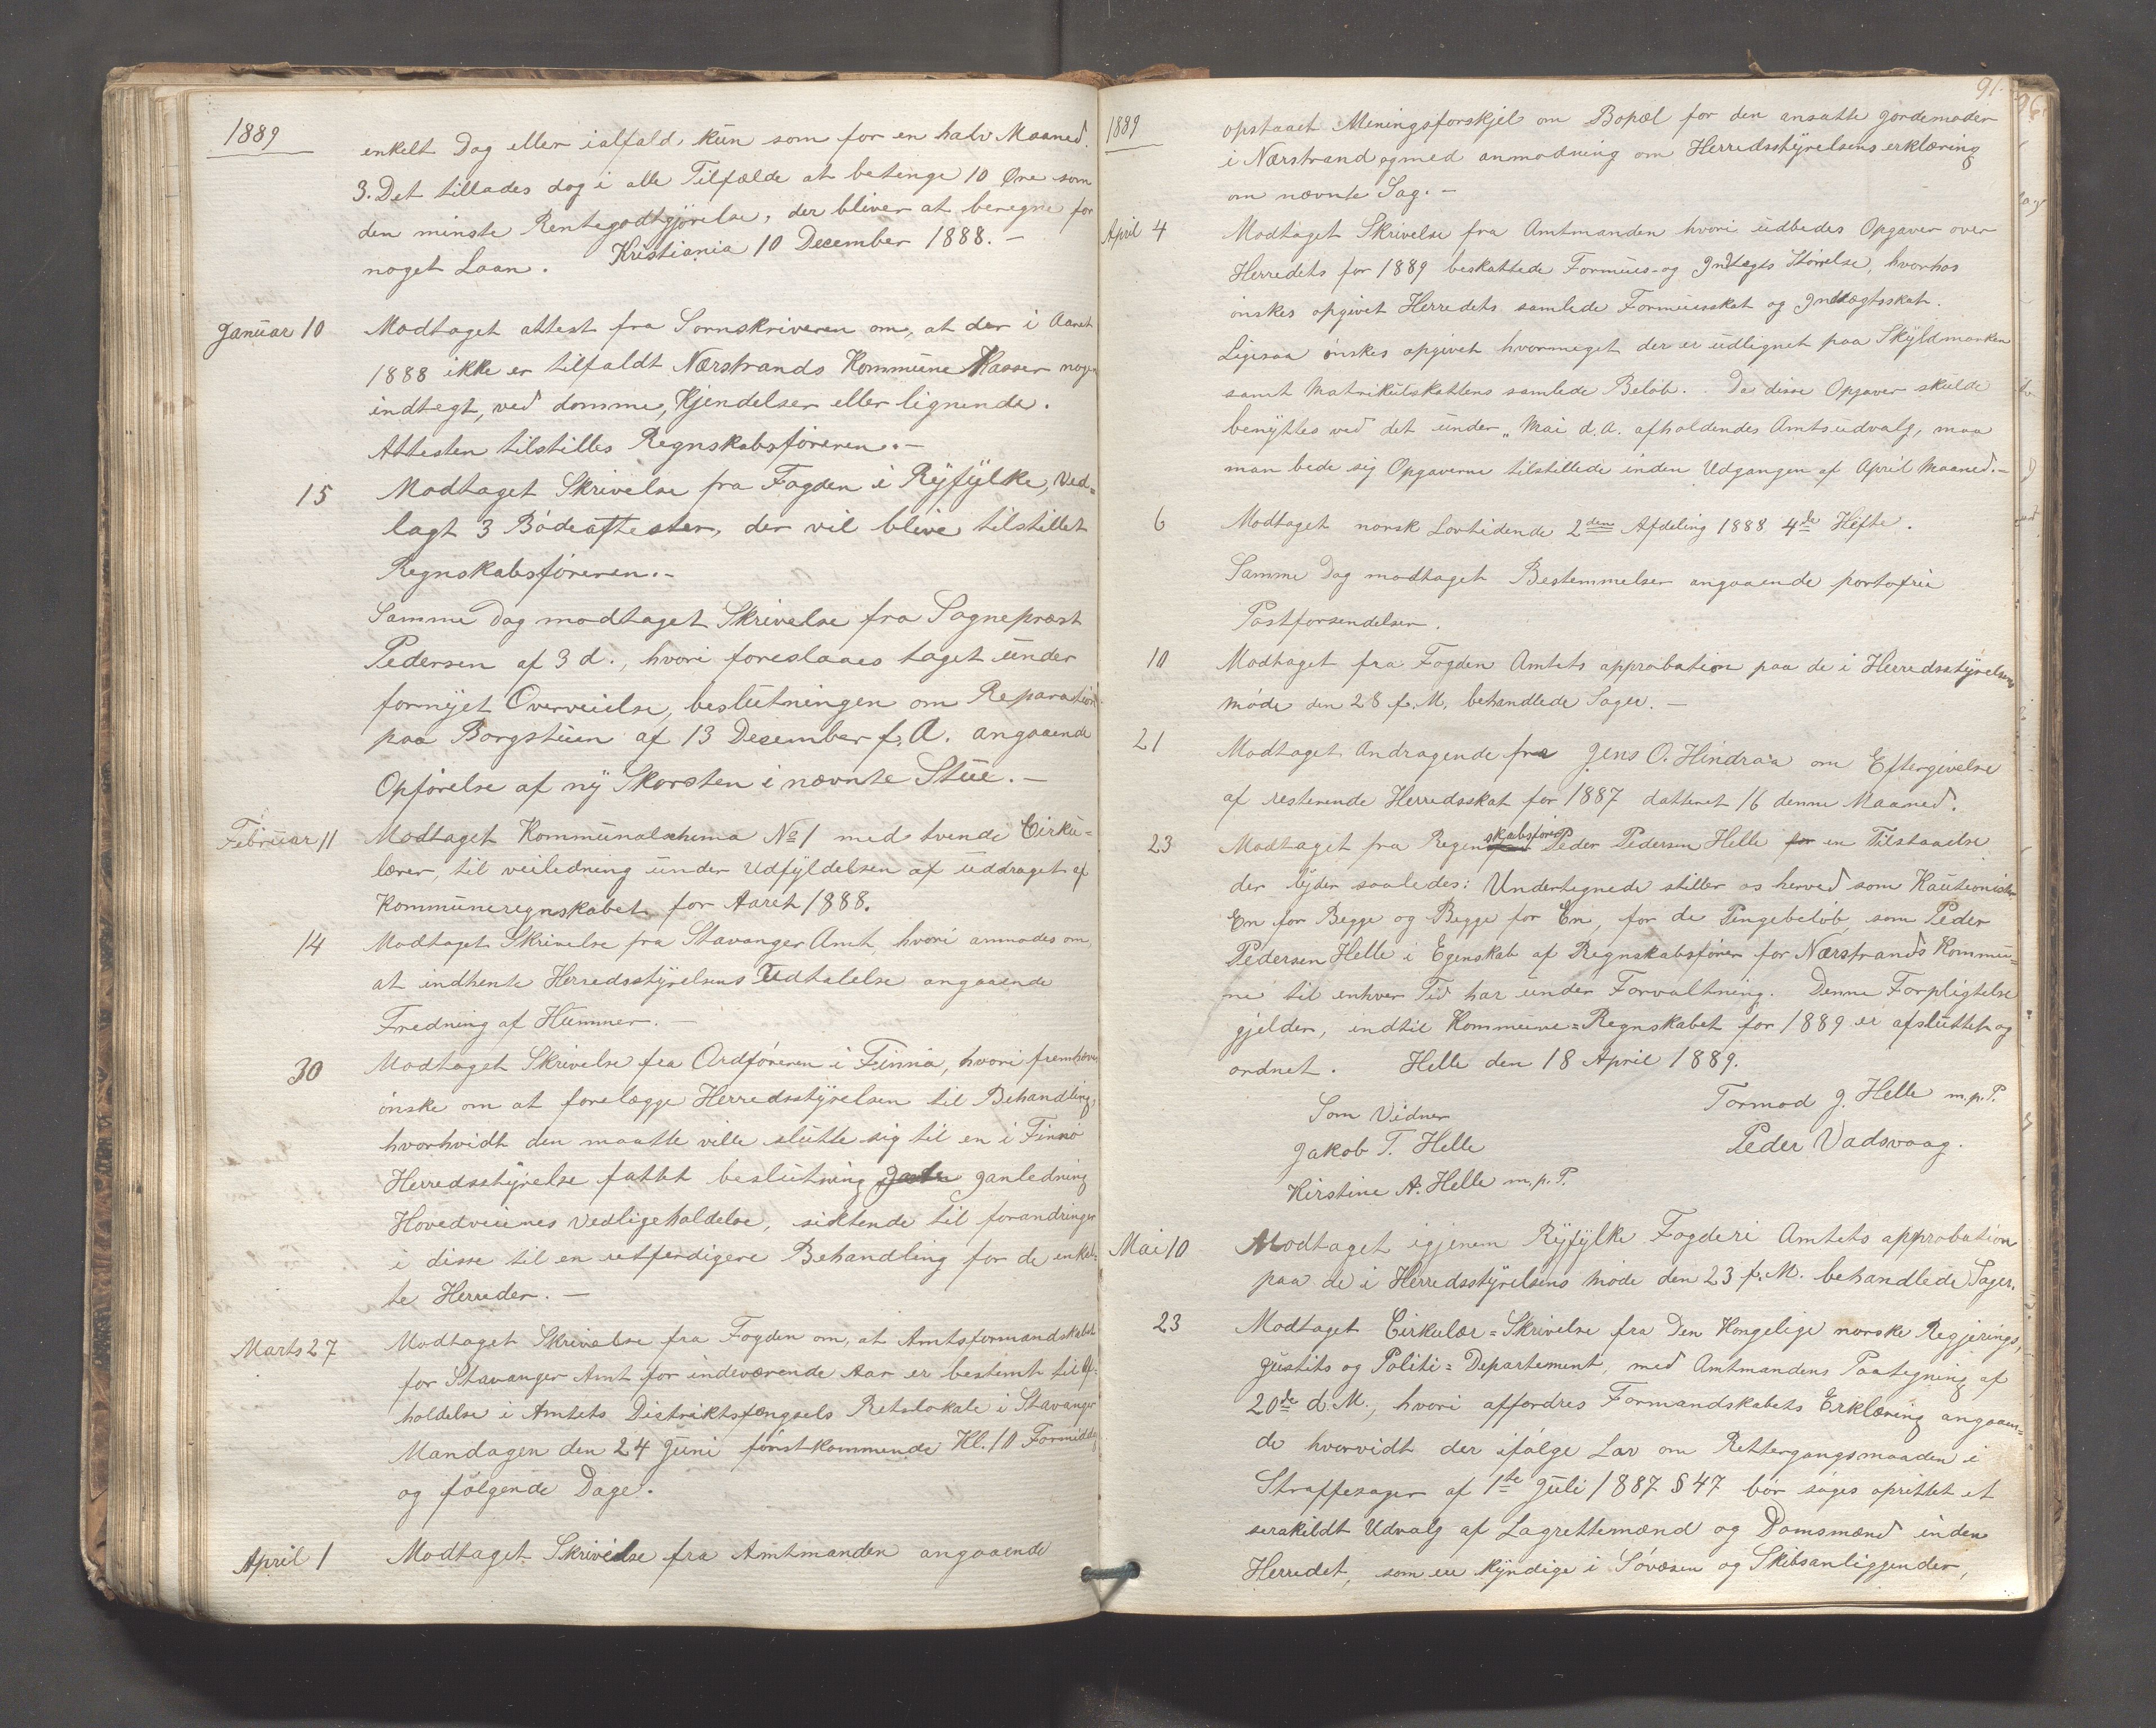 1889
enkelt Dag eller ialfald kun som for en halv Maaned.
3. Det tillades dog i alle Tilfælde at betinge 10 Øre som
den minste Rentegodtgjørelse, der bliver at beregne for
noget Laan. Kristiania 10 December 1888. –
Januar 10 Modtaget attest fra Sornskriveren om, at der i Aaret
1888 ikke er tilfaldt Nærstrands Kommune Kasser nogen
indtegt, ved domme, Kjendelser eller lignende.
Attesten tilstilles Regnskabsføreren. –
15 Modtaget Skrivelse fra Fogden i Ryfylke, Ved=
lagt 3 Bødeattester, der vil blive tilstillet
Regnskabsføreren. –
Samme Dag modtaget Skrivelse fra Sogneprest
Pedersen af 3 d., hvori foreslaaes taget under
fornyet Overveielse, beslutningen om Reparation
paa Borgstuen af 13 December f. A. angaaende
Opførelse af ny Skorsten i nævnte Stue. –
Februar 11 Modtaget Kommunalschema No 1 med tvende Cirku=
lærer, til veiledning under Udfyldelsen af uddraget af
Kommuneregnskabet for Aaret 1888.
14 Modtaget Skrivelse fra Stavanger Amt, hvori anmodes om,
at indhente Herredsstyrelsens Udtalelse angaaende
Fredning af Hummer. –
30 Modtaget Skrivelse fra Ordføreren i Finnø, hvori fremhæves
ønske om at forelægge Herredsstyrelsen til Behandling,
hvorhvidt den maatte ville slutte sig til en i Finnø
Herredsstyrelse fattet beslutning ganledning
Hovedveienes Vedligeholdelse, siktende til forandringer
i disse til en retferdigere Behandling for de enkel-
te Herreder. –
Marts 27 Modtaget Skrivelse fra Fogden om, at Amtsformandskabet
for Stavanger Amt for indeværende Aar er bestemt til Af-
holdelse i Amtets Distriktsfængsels Retslokale i Stavanger
Mandagen den 24 Juni førstkommende Kl. 10 Formiddag
og følgende Dage.
April 1 Modtaget Skrivelse fra Amtmanden angaaende
91.
96
1889
opstaaet Meningsforskjel om Bopæl for den ansatte gordemoder
i Nærstrand og med anmodning om Herredsstyrelsens erklæring
om nævnte Sag. –
April 4 Modtaget Skrivelse fra Amtmanden hvori udbedes Opgaver over
Herredets for 1889 beskattede Formues- og Indtegts Størrelse, hvorhos
ønskes opgivet Herredets samlede Formuesskat og Indtægtsskat.
Ligesaa ønskes opgivet hvormeget der er udlignet paa Skyldmarken
samt Matrikulskattens samlede Beløb. Da disse Opgaver skulde
benyttes ved det under „ Mai d. A. afholdendes Amtsudvalg, maa
man bede sig Opgaverne tilstillede inden Udgangen af April Maaned. –
6 Modtaget norsk Lovtidende 2den Afdeling 1888 4de Hefte.
Samme Dag modtaget Bestemmelser angaaende portofrie
Postforsendelser.
10 Modtaget fra Fogden Amtets approbation paa de i Herredsstyrelsens
møde den 28 f. M. behandlede Sager. –
21 Modtaget Andragende fra Jens O. Hindraa om Eftergivelse
af resterende Herredsskat for 1887 datteret 16 denne Maaned.
23 Modtaget fra Regenskabsfører Peder Pedersen Helle en Tilstaaelse
der lyder saaledes: Undertegnede stiller os herved som Kautionister
En for Begge og Begge for En, for de Pengebeløb, som Peder
Pedersen Helle i Egenskab af Regnskabsfører for Nærstrands Kommu=
ne til enhver Tid har under Forvaltning. Denne Forpligtelse
gjelder, indtil Kommune=Regnskabet for 1889 er afsluttet og
ordnet. Helle den 18 April 1889.
Som Vidner Tormod J. Helle m. p. P.
Jakob T. Helle Peder Vadsvaag.
Kirstine A. Helle m. p. P.
Mai 10 Modtaget igjenem Ryfylke Fogderi Amtets approbation
paa de i Herredsstyrelsens møde den 23 f. M. behandlede Sager.
23 Modtaget Cirkulær=Skrivelse fra Den Kongelige norske Regjerings,
Justits og Politi=Departement, med Amtmandens Paategning af
20de d. M., hvori affordres Formandskabets Erklæring angaaen=
de hvorvidt der ifølge Lov om Rettergangsmaaden i
Straffesager af 1te Juli 1887 § 47 bør søges oprettet et
serskildt Udvalg af Lagrettemænd og Domsmænd inden
Herredet, som ere kyndige i Søvæsen og Skibsanliggender,